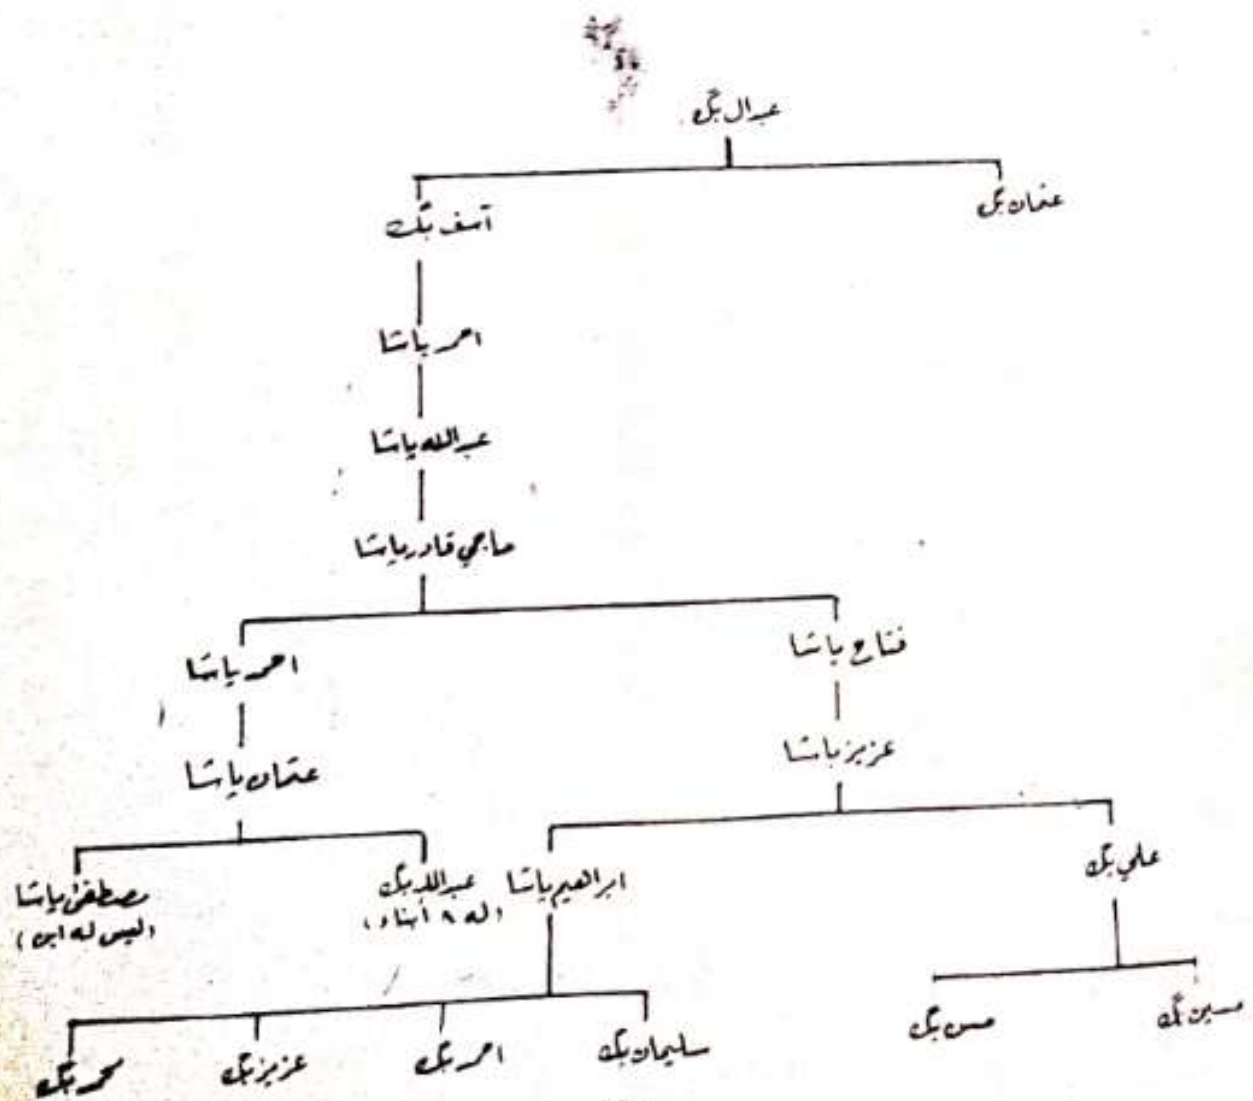 عبدال بگ
عثمان بگ
آسف بگ
احمد پاشا
عبدالله پاشا
حاجي قادر پاشا
فتاح پاشا
احمد پاشا
عزيز پاشا
عثمان پاشا
علي بگ
ابراهيم پاشا
عبدالله بگ
(له ٨ أبناء)
مصطفى پاشا
(ليس له ابن)
حسين بگ
حسن بگ
سليمان بگ
احمد بگ
عزيز بگ
محمد بگ